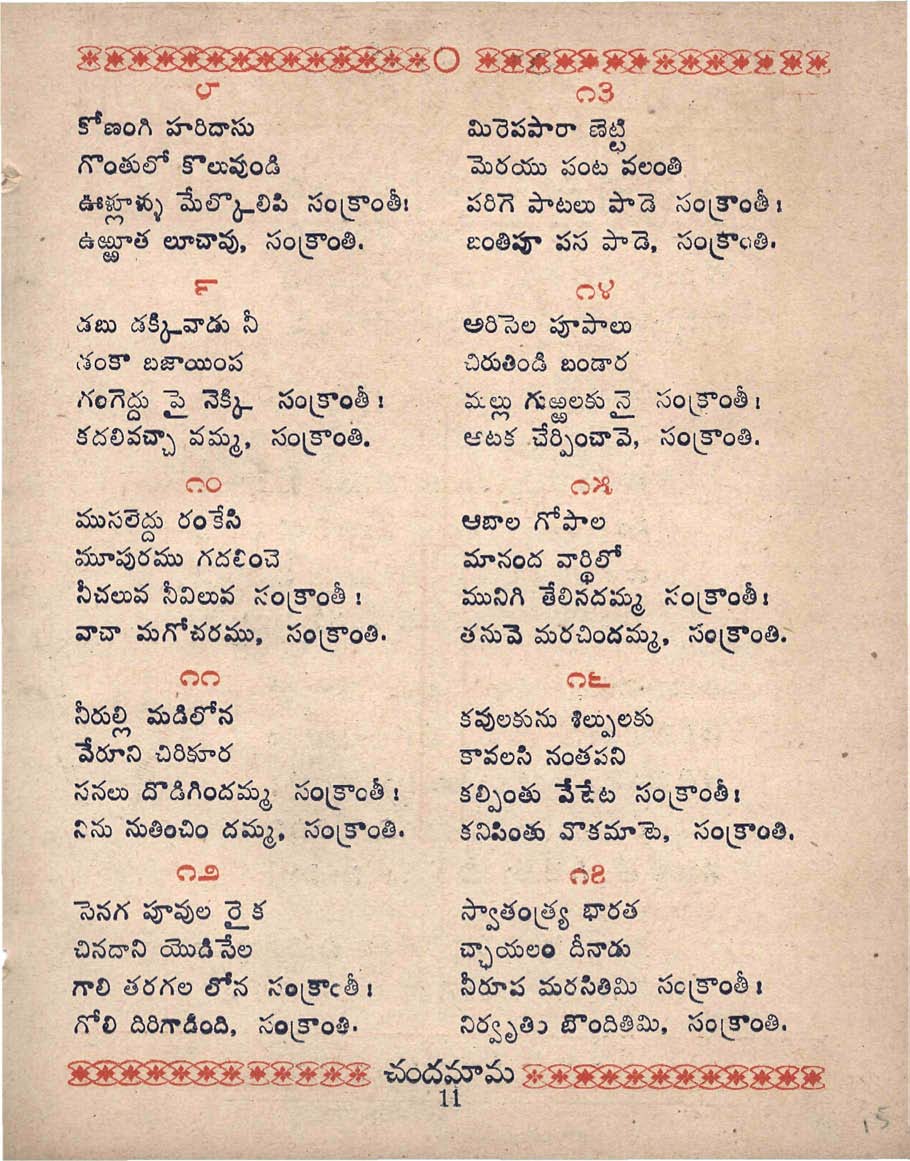 ౮
కోణంగి హరిదాసు
గొంతులో కొలువుండి
ఊళ్లూళ్ళు మేల్కొలిపి సంక్రాంతీ!
ఉఱ్ఱూత లూచావు, సంక్రాంతి.
౯
డబు డక్కివాడు నీ
డంకా బజాయింప
గంగెద్దు పై నెక్కి సంక్రాంతీ!
కదలివచ్చా వమ్మ, సంక్రాంతి.
౧౦
ముసలెద్దు రంకేసి
మూపురము గదలించె
నీచలువ నీవిలువ సంక్రాంతీ!
వాచా మగోచరము, సంక్రాంతి.
౧౧
నీరుల్లి మడిలోన
వేరూని చిరికూర
సనలు దొడిగిందమ్మ సంక్రాంతీ!
నిను నుతించిం దమ్మ, సంక్రాంతి.
౧౨
సెనగ పూవుల రైక
చినదాని యొడిసేల
గాలి తరగల లోన సంక్రాంతీ!
గోలి దిరిగాడింది, సంక్రాంతి.
౧౩
మిరెపపారా ణెట్టి
మెరయు పంట వలంతి
పరిగె పాటలు పాడె సంక్రాంతీ!
బంతిపూ వస పాడె, సంక్రాంతి.
౧౪
అరిసెల పూపాలు
చిరుతిండి బండార
మల్లు గుఱ్ఱలకు నై సంక్రాంతీ!
ఆటక చేర్పించావె, సంక్రాంతి.
౧౫
ఆబాల గోపాల
మానంద వార్థిలో
మునిగి తేలినదమ్మ సంక్రాంతీ!
తనువె మరచిందమ్మ, సంక్రాంతి.
౧౬
కవులకును శిల్పులకు
కావలసి నంతపని
కల్పింతు వేటేట సంక్రాంతీ!
కనిపింతు వొకమాటె, సంక్రాంతి.
౧౭
స్వాతంత్ర్య భారత
చ్ఛాయలం దీనాడు
నీరూప మరసితిమి సంక్రాంతీ!
నిర్వృతి బొందితిమి, సంక్రాంతి.
చందమామ
11
15